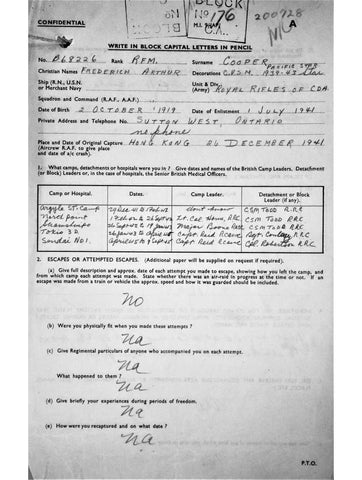 BLOCK
CONFIDENTIAL
Nº 176
200728
M.I.
A
WRITE IN BLOCK CAPITAL LETTERS IN PENCIL
No. B68226 Rank RFM. Surname COOPER
PACIFIC STAR
Christian Names FREDERICH ARTHUR Decorations C.V.S.M. 1939-45 Star
Ship (R.N., U.S.N. or Merchant Navy
Unit & Div. (Army) ROYAL RIFLES OF CDA.
Squadron and Command (R.A.F., A.A.F.)
Date of Birth 2 OCTOBER 1919 Date of Enlistment 1 JULY 1941
Private Address and Telephone No. SUTTON WEST, ONTARIO
no phone
Place and Date of Original Capture HONG KONG 26 DECEMBER 1941
(Aircrew R.A.F. to give place and date of a/c crash).
1. What camps, detachments or hospitals were you in? Give dates and names of the British Camp Leaders, Detachment (or Block) Leaders or, in the case of hospitals, the Senior British Medical Officers.
Camp or Hospital. Dates. Camp Leader. Detachment or Block Leader (if any).
Argyle St. Camp dont know CSM Todd R.R.C
North Point Lt. Col Home, RRC CSM Todd RRC
Shamshuipo Major CSM Todd RRC
Tokio 3D Capt. Reid RCAMC Sgt. RRC
Sendai No1. Capt. Reid RCAMC Cpl. Robertson RRC
2. ESCAPES OR ATTEMPTED ESCAPES. (Additional paper will be supplied on request if required).
(a) Give full description and approx. date of each attempt you made to escape, showing how you left the camp, and from which camp each attempt was made. State whether there was an air-raid in progress at the time or not. If an escape was made from a train or vehicle the approx. speed and how it was guarded should be included.
NO
(b) Were you physically fit when you made these attempts?
na
(c) Give Regimental particulars of anyone who accompanied you on each attempt.
na
What happened to them?
na
(d) Give briefly your experiences during periods of freedom.
na
(e) How were you recaptured and on what date?
na
P.T.O.